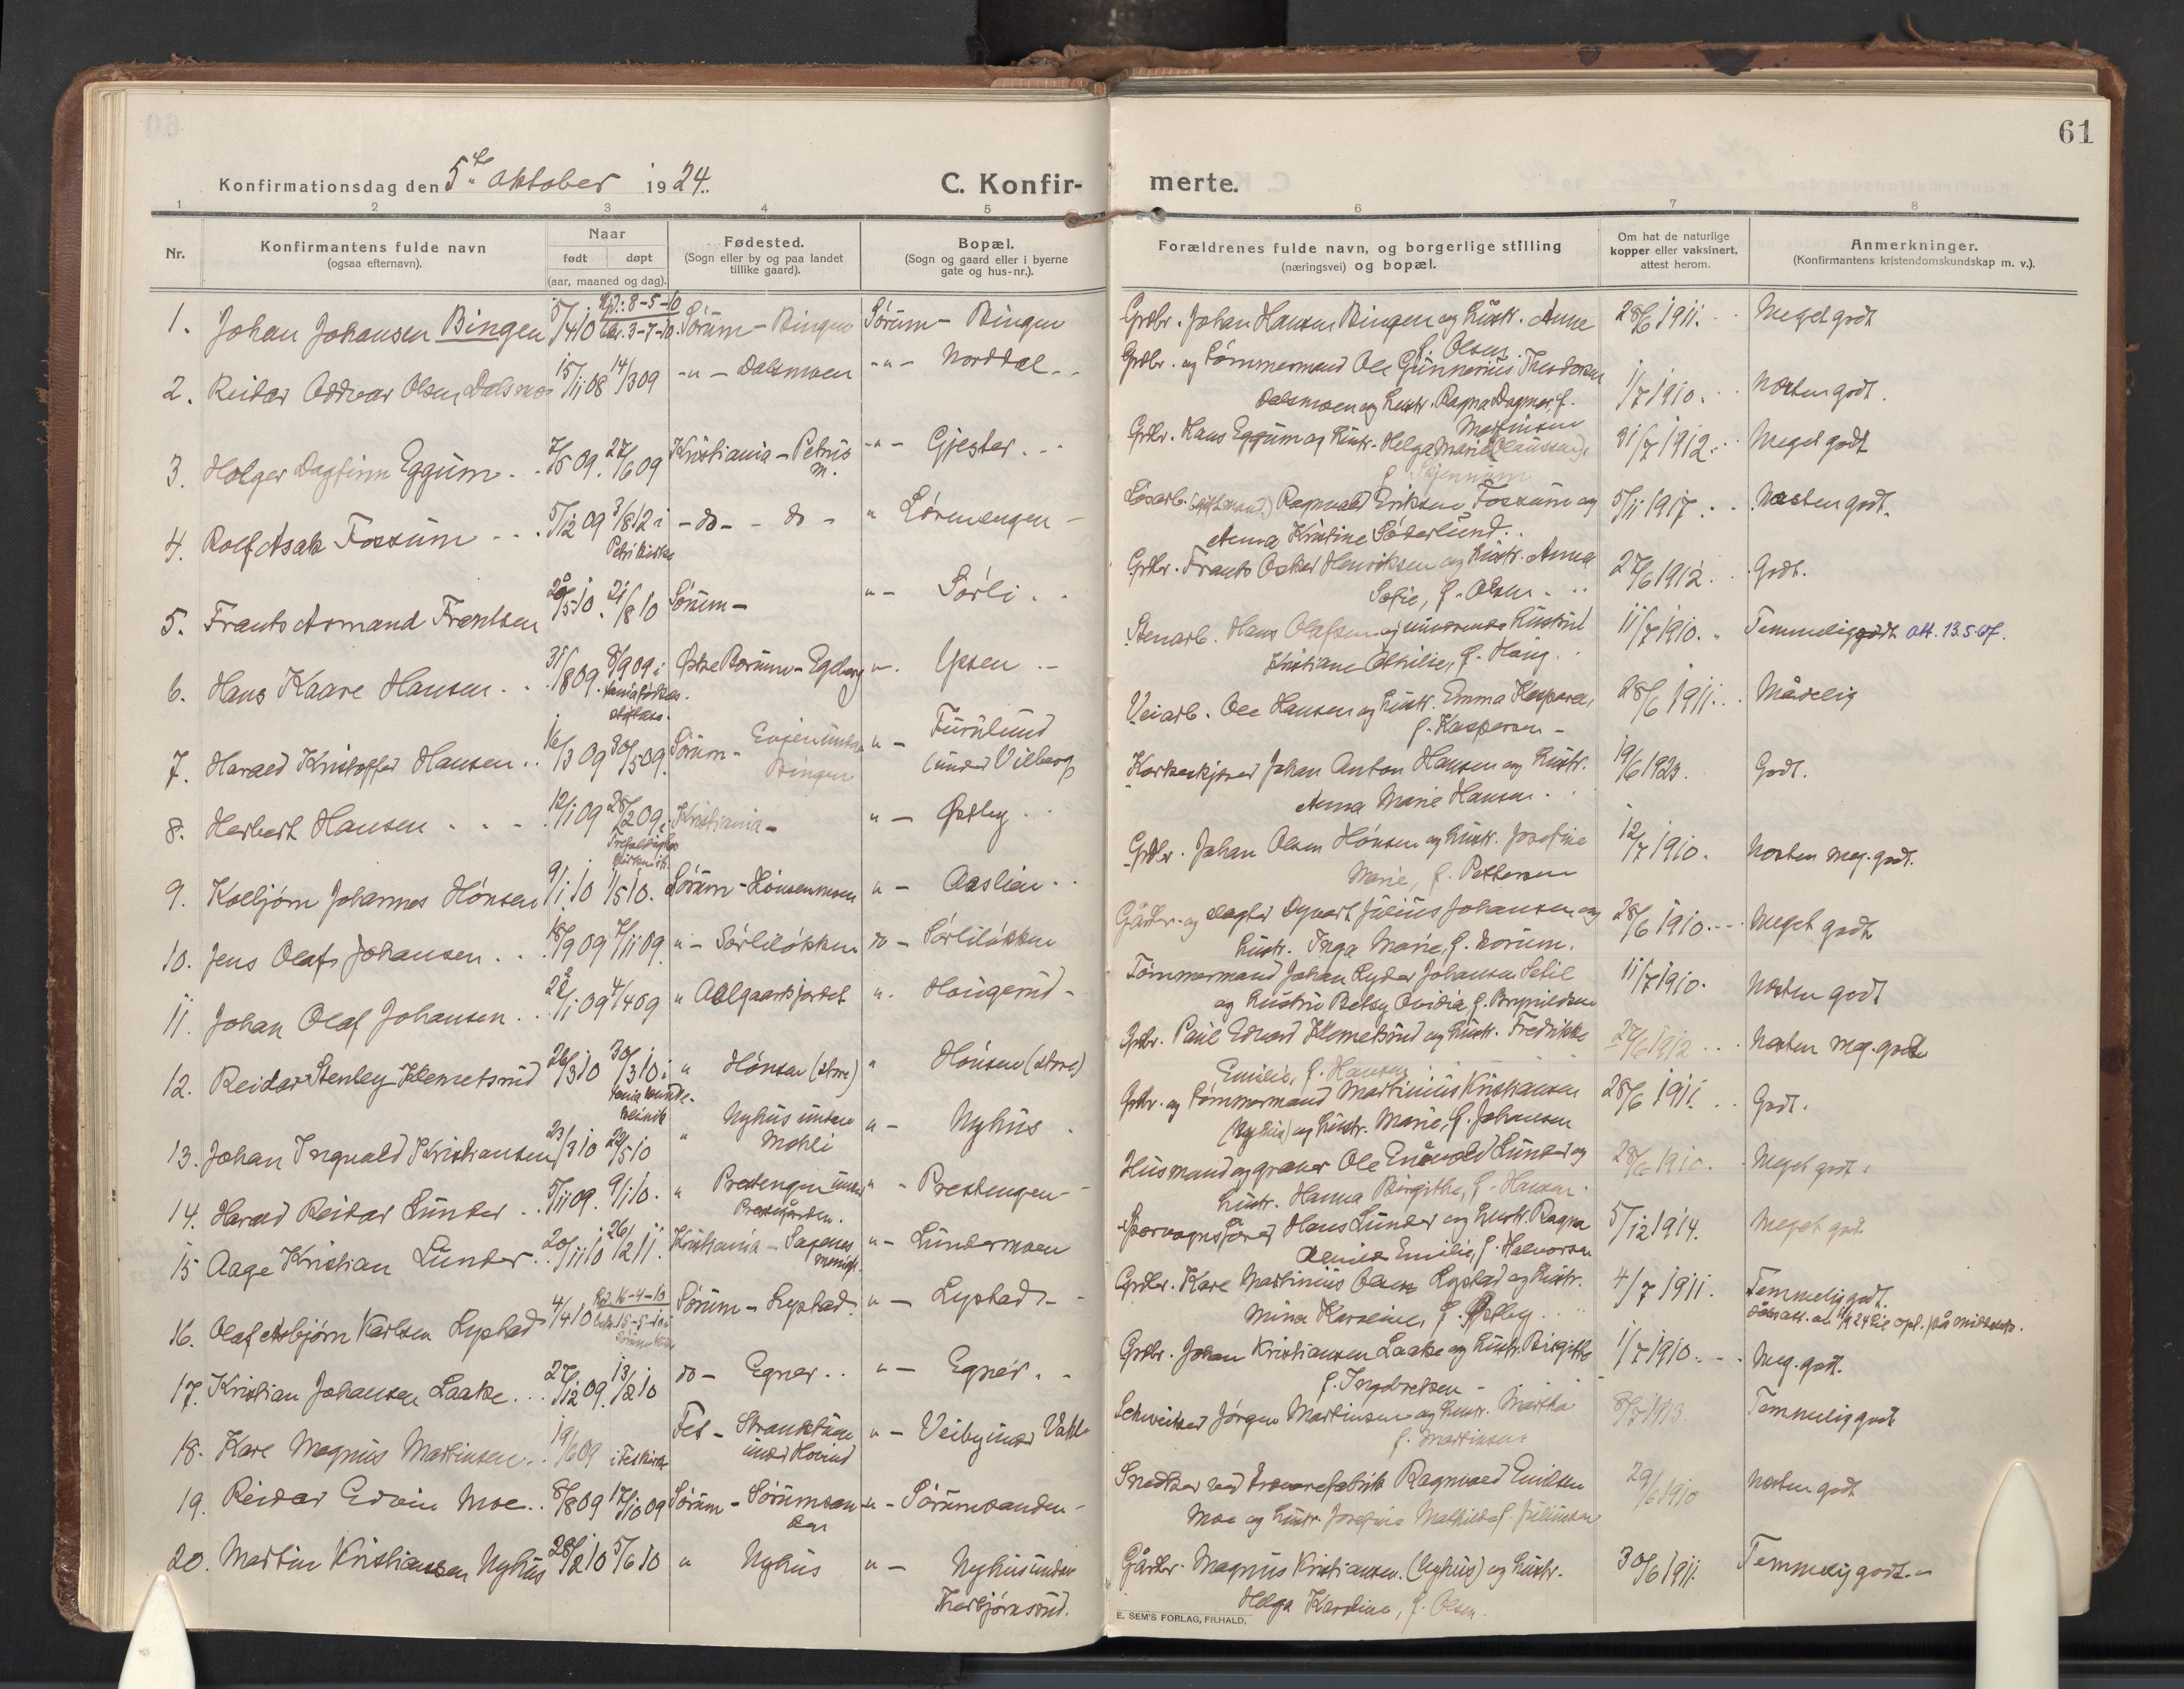 61
Konfirmationsdag den 5te oktober 1924.
C. Konfir-
merte.
1 2 3 4 5 6 7 8
Nr.
Konfirmantens fulde navn
(ogsaa efternavn).
Naar
født døpt
(aar, maaned og dag).
Fødested.
(Sogn eller by og paa landet
tillike gaard).
Bopæl.
(Sogn og gaard eller i byerne
gate og hus-nr.).
Forældrenes fulde navn, og borgerlige stilling
(næringsvei) og bopæl.
Om hat de naturlige
kopper eller vaksinert,
attest herom.
Anmerkninger.
(Konfirmantens kristendomskundskap m. v.).
1. Johan Johansen Bingen 5/4 10 8-5-10 3-7-10. Sørum - Bingen Sørum - Bingen
Grdbr. Johan Hansen Bingen og hustr. Anne
f. Olsen.
28/6 1911. Meget godt
2. Reidar Oddvar Olsen Dalsmo 15/11 08 14/3 09 -"- Dalsmoen -"- Norddal
Grdbr. og tømmermand Ole Gunnerius Theodorsen
Dalsmoen og hustr. Ragna Dagmar, f.
Martinsen
1/7 1910. Næsten godt.
3. Holger Dagfinn Eggum 7/5 09. 27/6 09 Kristiania - Petrus
m. -"- Gjester.
Grdbr. Hans Eggum og hustr. Helga Marie
31/7 1912. Meget godt
4. Rolf Asak Fossum 5/12 09 3/8 12 i
Petri kirke - do - - do - " Lørenengen -
Ragnvald Eriksen Fossum og
Anna Kristine Søderlund.
5/11 1917. Næsten godt.
5. Frants Armand Frantsen 20/5 10. 21/8 10 Sørum - "- Sørli.
Grdbr. Frants Oskar Henriksen og hustr. Anna
Sofie, f. Olsen.
27/6 1912. Godt.
6. Hans Kaare Hansen 31/8 09. 8/9 09 i Østre Bærum - "- Ipsen.
Stenarb. Hans Olafsen og nuværende hustru
Kristiane Othilie, f. Haug.
11/7 1910. Temmelig godt att. 13.5.67.
7. Harald Kristoffer Hansen 16/3 09 30/5 09. Sørum - Evjen under
Bingen "- Furulund
(under Vilberg)
Veiarb. Ole Hansen og hustr. Emma Kaspara,
f. Kaspersen -
28/6 1911. Mådelig
8. Herbert Hansen 12/1 09 28/2 09 i Kristiania - " - Østby
Johan Anton Hansen og hustr.
Anna Marie Hansen.
19/6 1923. Godt.
9. Kolbjørn Johannes Hønsen 9/1 10 1/5 10. Sørum - Hønsenmoen " - Aaslien
Grdbr. Johan Olsen Hønsen og hustr. Josefine
Marie, f. Pettersen
12/7 1910. Næsten meg. godt.
10. Jens Olaf Johansen 18/9 09 7/11 09. " - Sørliløkken do - Sørliløkken
Gårdbr. og slagter Dyvart Julius Johansen og
hustr. Inga Marie, f. Norum.
28/6 1910. Meget godt
11. Johan Olaf Johansen 22/1 09 4/4 09 " Aalgaardsjordet ". Haugerud -
Tømmermand Johan Ryder Johansen Setil
og hustru Betsy Ovidia, f. Brynildsen
11/7 1910. Næsten godt
12. Reidar Stenley Klemetsrud 26/3 10 30/3 10 i " Hønsen (store) " Hønsen (store)
Grdbr. Paul Edvard Klemetsrud og hustr. Fredrikke
Emilie, f. Hansen
27/6 1912 Næsten meg. godt
13. Johan Ingvald Kristiansen 23/3 10 22/5 10 " Nyhus under
Mohli "- Nyhus
Grdbr. og tømmermand Martinius Kristiansen
(Nyhus) og hustr. Marie, f. Johansen
28/6 1911. Godt.
14. Harald Reidar Lunder 5/11 09. 9/1 10. " Prestengen under
Prestgården. " - Prestengen -
Husmand og graver Ole Enevold Lunder og
hustr. Hanna Birgithe, f. Hansen.
28/6 1910. Meget godt.
15 Aage Kristian Lunder 20/11 10 26/2 11. Kristiania - Sagenes
menigh. "- Lundermoen
Sporvognsfører Hans Lunder og hustr. Ragna
Emilie, f. Halvorsen
5/12 1914. Meget godt
16. Olaf Asbjørn Karlsen Lystad 4/4 10 16-4-10
15-5-10 Sørum - Lystad. " - Lystad -
Grdbr. Karl Martinius Olsen Lystad og hustr.
Mina Karoline, f. Østby.
4/7 1911. Temmelig godt.
17. Kristian Johansen Laake 27/12 09. 13/2 10 do - Egner " - Egner.
Grdbr. Johan Kristiansen Laake og hustr. Birgithe
f. Ingebretsen -
1/7 1910. Meg. godt.
18. Kare Magnus Martinsen 19/6 09 i Fet kirke Fet -
under Hovind " - Veiby under
Schweitzer Jørgen Martinsen og hustr. Martha
f. Martinsen
8/7 1913. Temmelig godt
19. Reidar Edvin Moe 8/8 09 17/10 09 Sørum - Sørumsan
den -"- Sørumsanden -
Snedker ved trævarefabrik Ragnvald Emilsen
Moe og hustr. Josefine Mathilde f. Juliussen
29/6 1910 Næsten godt
20. Martin Kristiansen Nyhus 28/2 10 5/6 10 " Nyhus " - Nyhus under
Torbjørnsrud.
Gårdbr. Magnus Kristiansen (Nyhus) og hustr.
Helga Karoline, f. Olsen.
30/6 1911. Temmelig godt.
E. SEM'S FORLAG, FR.HALD.